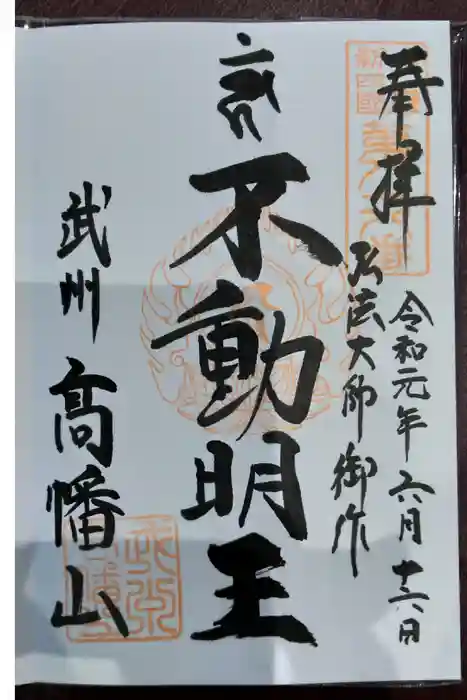 奉拝
令和元年六月十六日
弘法大師御作
不動明王
武州
高幡山